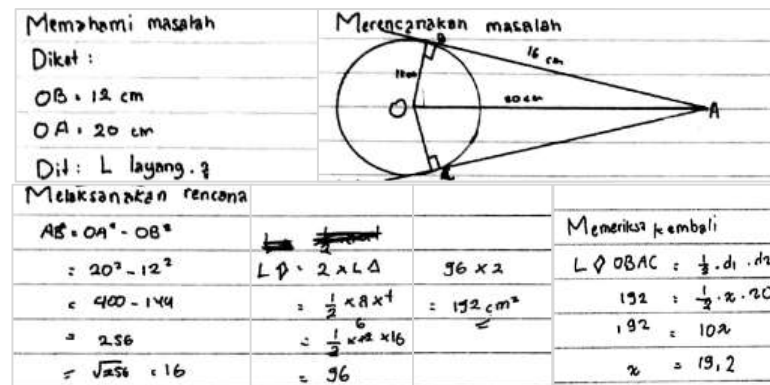 Memahami masalah
Diket :
OB = 12 cm
OA = 20 cm
Dit : L layang.²
Merencanakan masalah
B
16 cm
12 cm
20 cm
O
A
Melaksanakan rencana
AB² = OA² - OB²
= 20² - 12²
= 400 - 144
= 256
= √256 = 16
L = 2 x L Δ
= 1/2 x a x t
6
= 1/2 x 12 x 16
= 96
96 x 2
= 192 cm²
Memeriksa kembali
L OBAC = 1/2 . d1 . d2
192 = 1/2 . x . 20
192 = 10x
x = 19,2